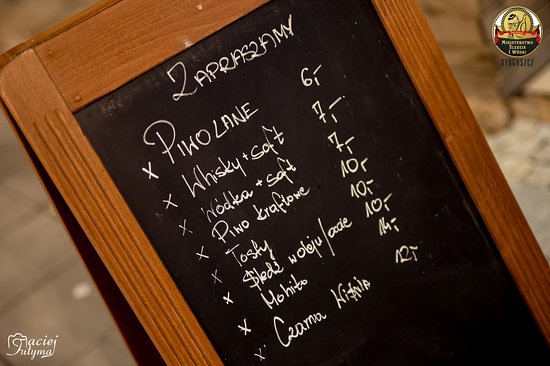 ZAPRASZAMY
x PIWO LANE 6,-
x Whisky + soft 7,-
x Wódka + soft 7,-
x Piwo kraftowe 10,-
x Tosty 10,-
x Śledź w oleju/occie 10,-
x Mohito 14,-
x Czarna Wiśnia 12,-
MINISTERSTWO
ŚLEDZIA
I WÓDKI
BYDGOSZCZ
Maciej
Gutyma